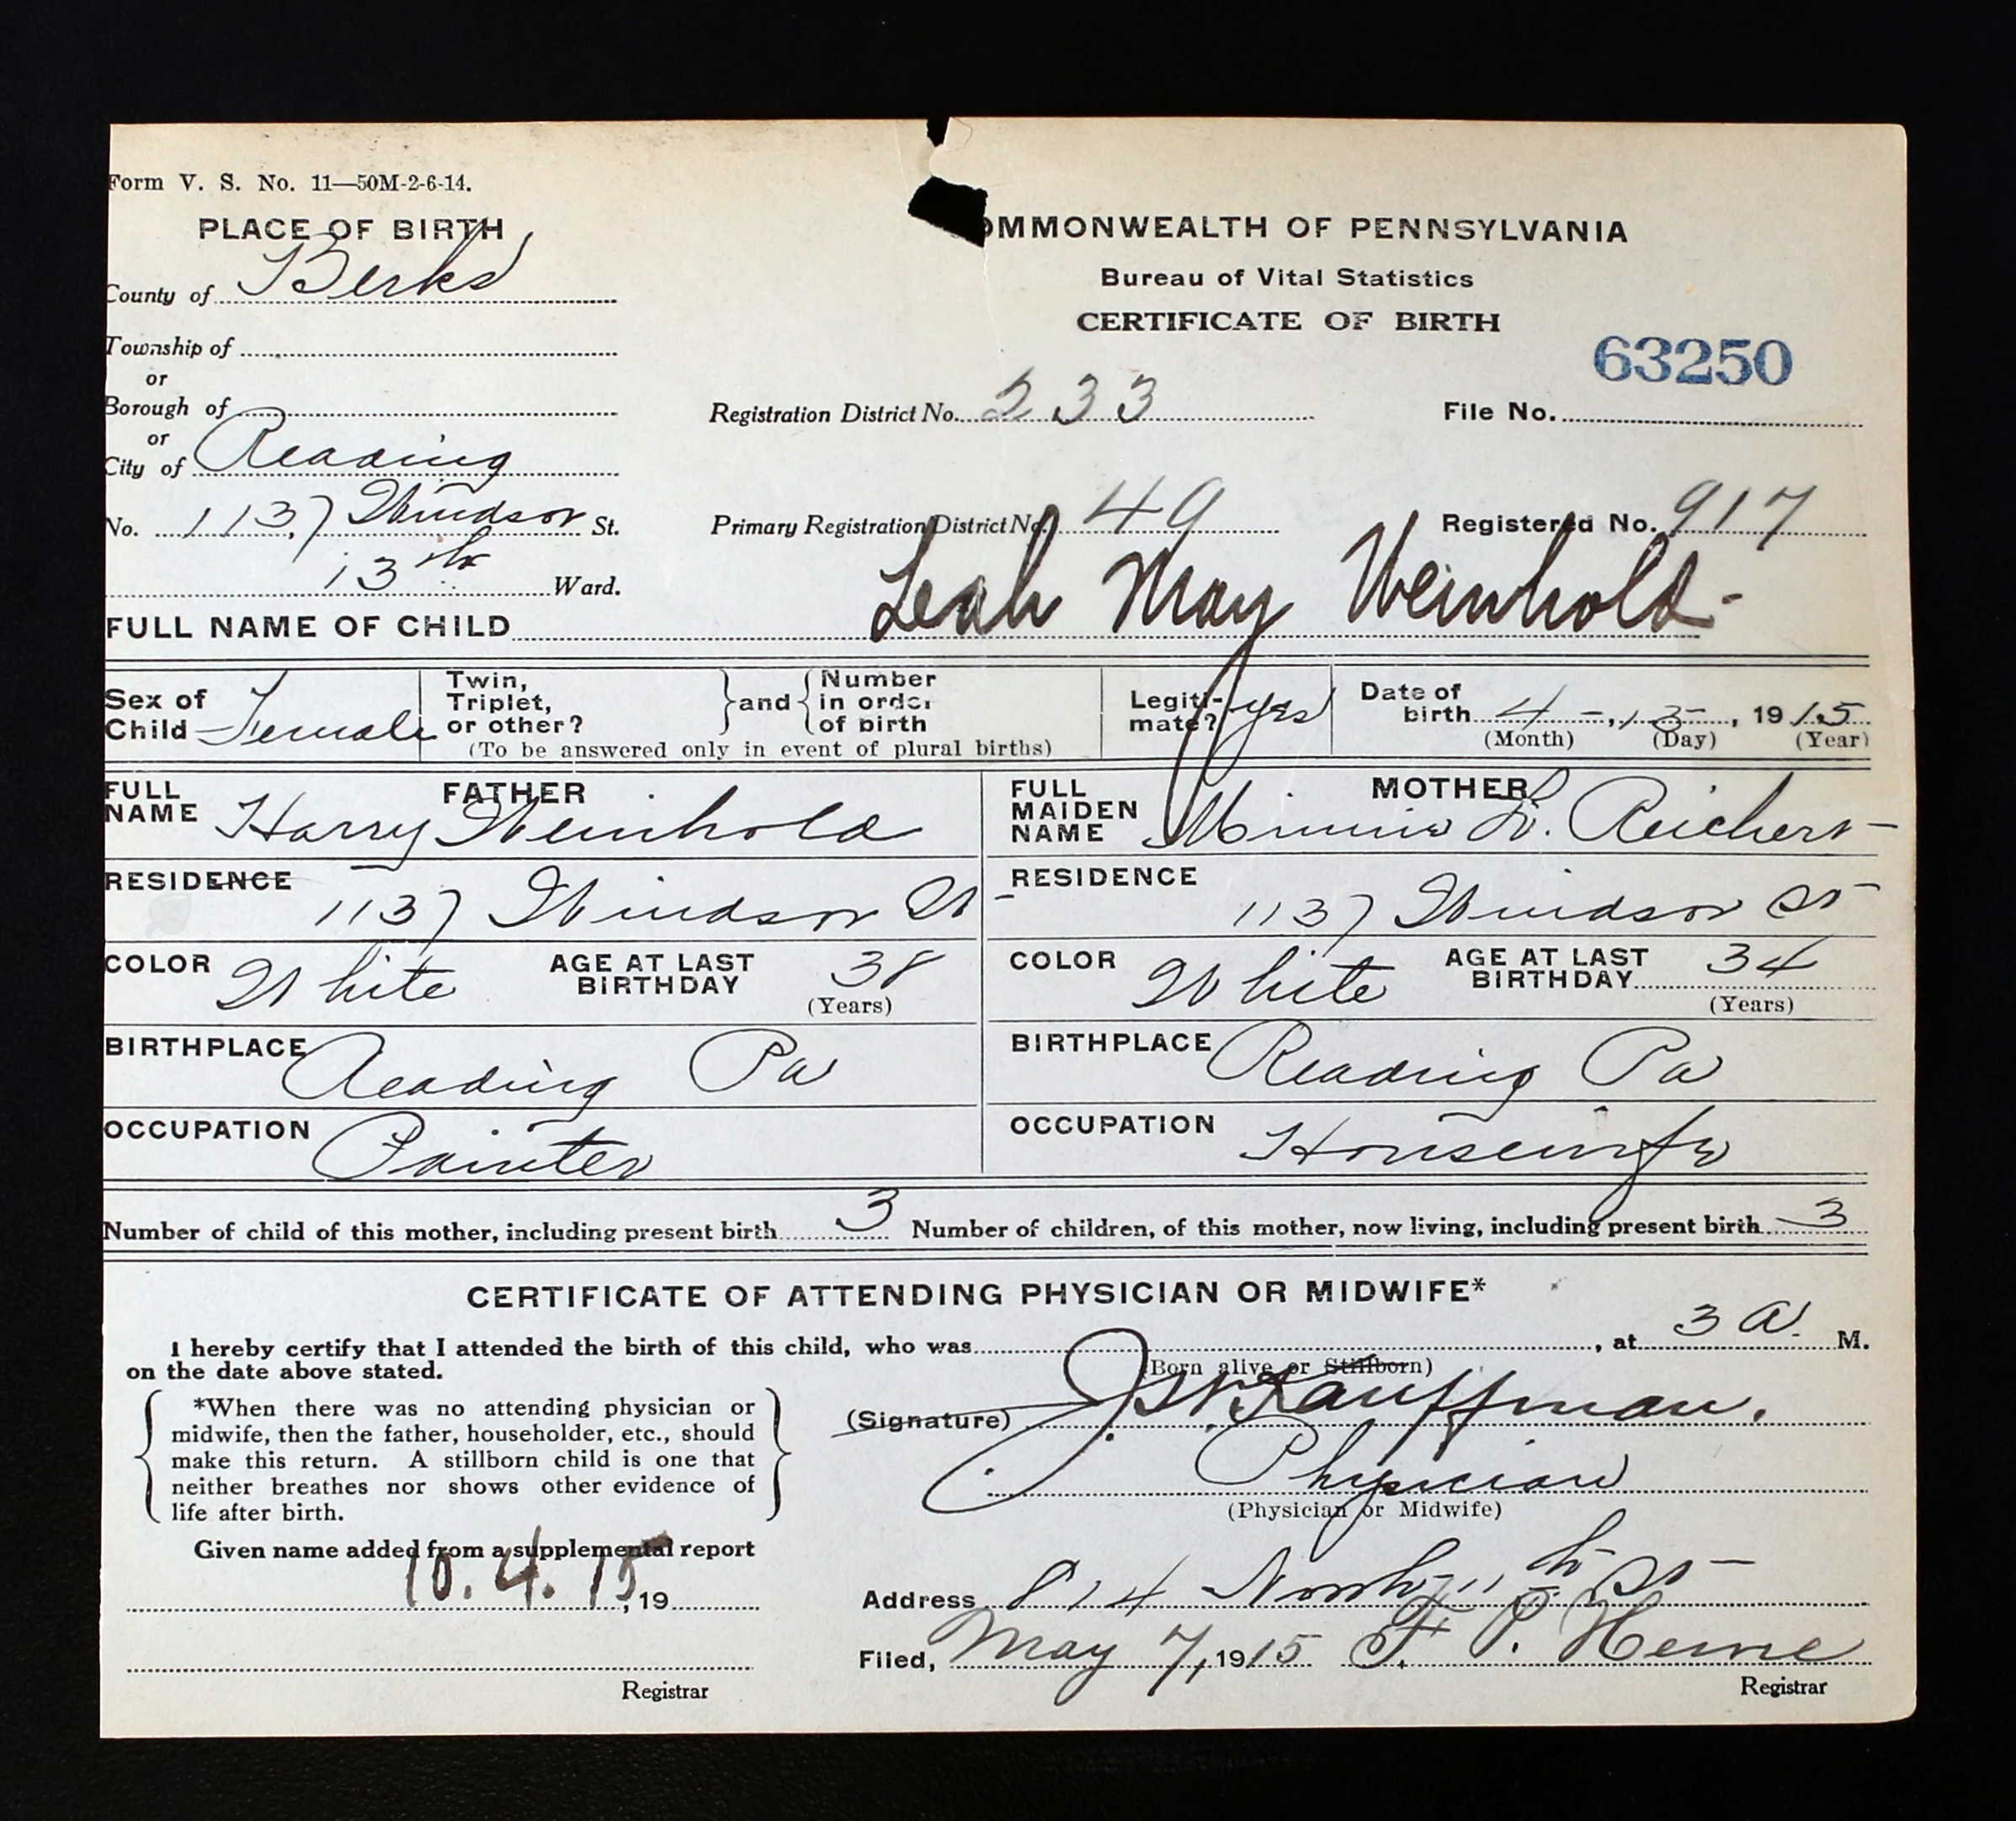 Form V. S. No. 11—50M-2-6-14.
PLACE OF BIRTH
County of Berks
Township of
or
Borough of
or
City of Reading
No. 1137 Windsor St.
13th Ward.
OMMONWEALTH OF PENNSYLVANIA
Bureau of Vital Statistics
CERTIFICATE OF BIRTH
63250
Registration District No. 233 File No.
Primary Registration District No. 49 Registered No. 917
FULL NAME OF CHILD Leah May Weinhold
Sex of Child Female
Twin, Triplet, or other? and Number in order of birth
(To be answered only in event of plural births)
Legiti- mate? yes
Date of birth 4 - , 13 , 1915
(Month) (Day) (Year)
FATHER
FULL NAME Harry Weinhold
RESIDENCE 1137 Windsor St
COLOR White AGE AT LAST BIRTHDAY 38 (Years)
BIRTHPLACE Reading Pa
OCCUPATION Painter
MOTHER
FULL MAIDEN NAME Minnie L. Reichert
RESIDENCE 1137 Windsor St
COLOR White AGE AT LAST BIRTHDAY 34 (Years)
BIRTHPLACE Reading Pa
OCCUPATION Housewife
Number of child of this mother, including present birth 3 Number of children, of this mother, now living, including present birth 3
CERTIFICATE OF ATTENDING PHYSICIAN OR MIDWIFE*
I hereby certify that I attended the birth of this child, who was , at 3 A. M.
on the date above stated. (Born alive or Stillborn)
*When there was no attending physician or
midwife, then the father, householder, etc., should
make this return. A stillborn child is one that
neither breathes nor shows other evidence of
life after birth.
(Signature) J. W. Kauffman.
Physician
(Physician or Midwife)
Given name added from a supplemental report
10.4.15, 19
Registrar
Address 814 North 11th St
Filed, May 7, 1915 F. P.
Registrar